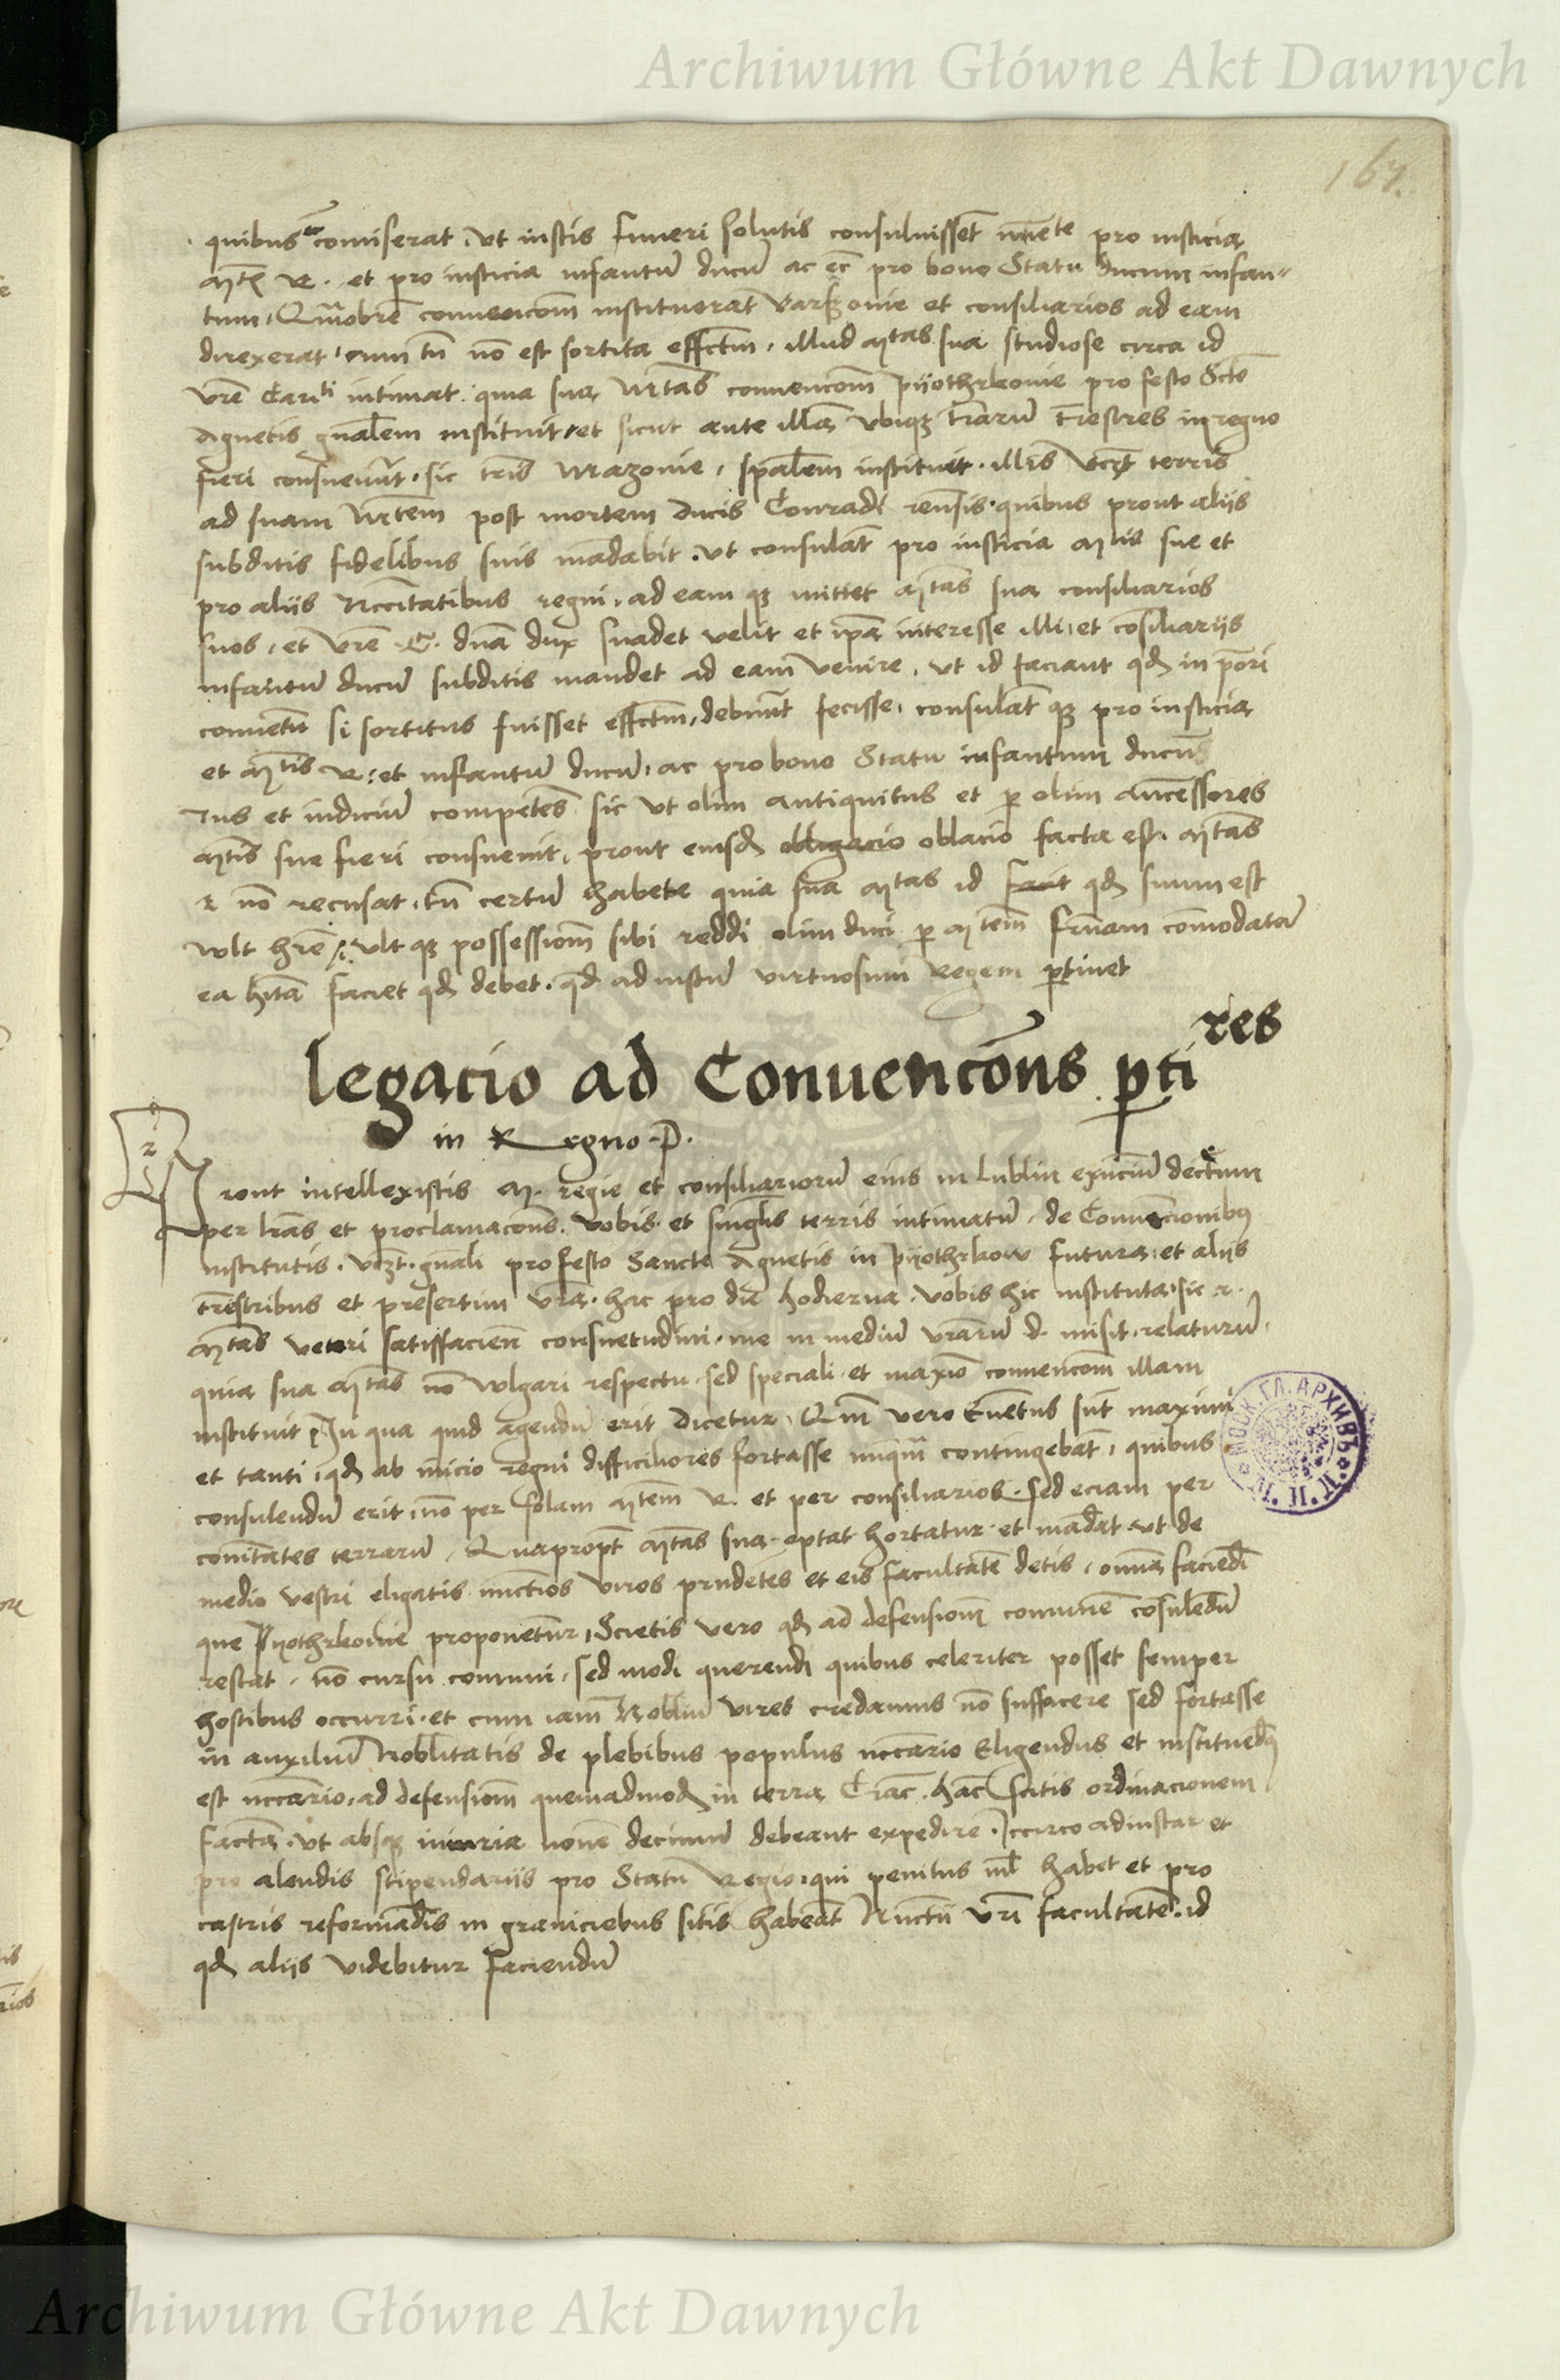 Archiwum Główne Akt Dawnych
167.
quibus comiserat. ut iustis funeri solutis consuluissēt pro iusticia
M R. et pro iusticia infantū ducū ac ec pro bono Statu ducum infan-
tum, Quāobrē convencom instituerat Varszovie et consiliarios ad eam
direxerat, cum tn nō est sortita effctm, illud Mtas sua studiose circa id
vrē intimat. quia sua Mtas convencom pyothrkovie pro festo Scte
Agnetis gnālem instituit, et sicut ante illā ubiqz trarū trestres in regno
fieri consueverūt, sic tris Mazovie, spālem instituit. illis terris
ad suam Mtem post mortem ducis Conradi quibus prout aliis
subditis fidelibus suis mādabit. ut consulāt pro iusticia Mtis sue et
pro aliis nccitatibus regni, ad eam qz mittet Mtas sua consiliarios
suos, et vrē G. dnā dux suadet velit et ipā interesse illi, et cōsiliariis
infantū ducū subditis mandet ad eam venire, ut id faciant qd in priori
conventu si sortitus fuisset effctm, debuerūt fecisse, consulāt qz pro iusticia
et Mtis R: et infantū ducū, ac pro bono Statu infantum ducum
Ius et iudiciū competēs sic ut olim antiquitus et p olim Ancessores
Mtis sue fieri consuevit, prout eiusd obligacio oblacio facta est, Mtas
r nō recusat, tn certū habete quia sua Mtas id faciet qd suum est
wlt hrē, vlt qz possessionē sibi reddi olim duci p Mtem suam cōmodatā
ea hita faciet qd debet. qd ad iustū virtuosum Regem ptinet
legacio ad Convencōns ptires
in Regno P.
Pront intellexistis M. regie et consiliariorū eius in lublin decretum
per lras et proclamacōns vobis et singlis terris intimatū, de Convencionibus
institutis. vczt. gnāli pro festo Sancte Agnetis in pyothrkow futura, et aliis
trēstribus et presertim vrā. hac pro die hodierna vobis hic instituta, sic r.
Mtas veteri satisfacien consuetudini. me in mediū vrārū d. misit, relaturū,
quia sua Mtas nō vulgari respectu, sed speciali et maxio convencom illam
instituit In qua quid agendū erit dicetur, Qm vero Eventus sūt maximi
et tanti, qd ab inicio regni difficiliores fortasse nūqm contingebāt, quibus
consulendū erit, nō per solam Mtem R. et per consiliarios, sed eciam per
cōitates terrarū, Quapropt Mtas sua optat hortatur et mādat ut de
medio vestri eligatis nuctios viros prudētes et eis facultatē detis, omīa faciēdi
que Pyothrkovie proponētur, Scietis vero qd ad defensionē comunē cōsulēdū
restat, nō cursu comuni, sed modi querendi quibus celeriter posset semper
hostibus occurri et cum iam Nobiliū vires credamus nō sufficere sed fortasse
in auxiliū Nobilitatis de plebibus populus nccario Eligendus et instituēdus
est nccario, ad defensionē quemadmodū in terra Crac. hāc scitis ordinacionem
factā, ut absqz iniuria decimū debeant expedire. Iccirco adinstar et
pro alendis stipendariis pro Statu Regio, qui penitus nil habet et pro
castris reformādis in graniciebus sitis habeāt Nuctii vri facultatē, id
qd aliis videbitur faciendū
МОСК. ГЛ. АРХИВЪ
Archiwum Główne Akt Dawnych